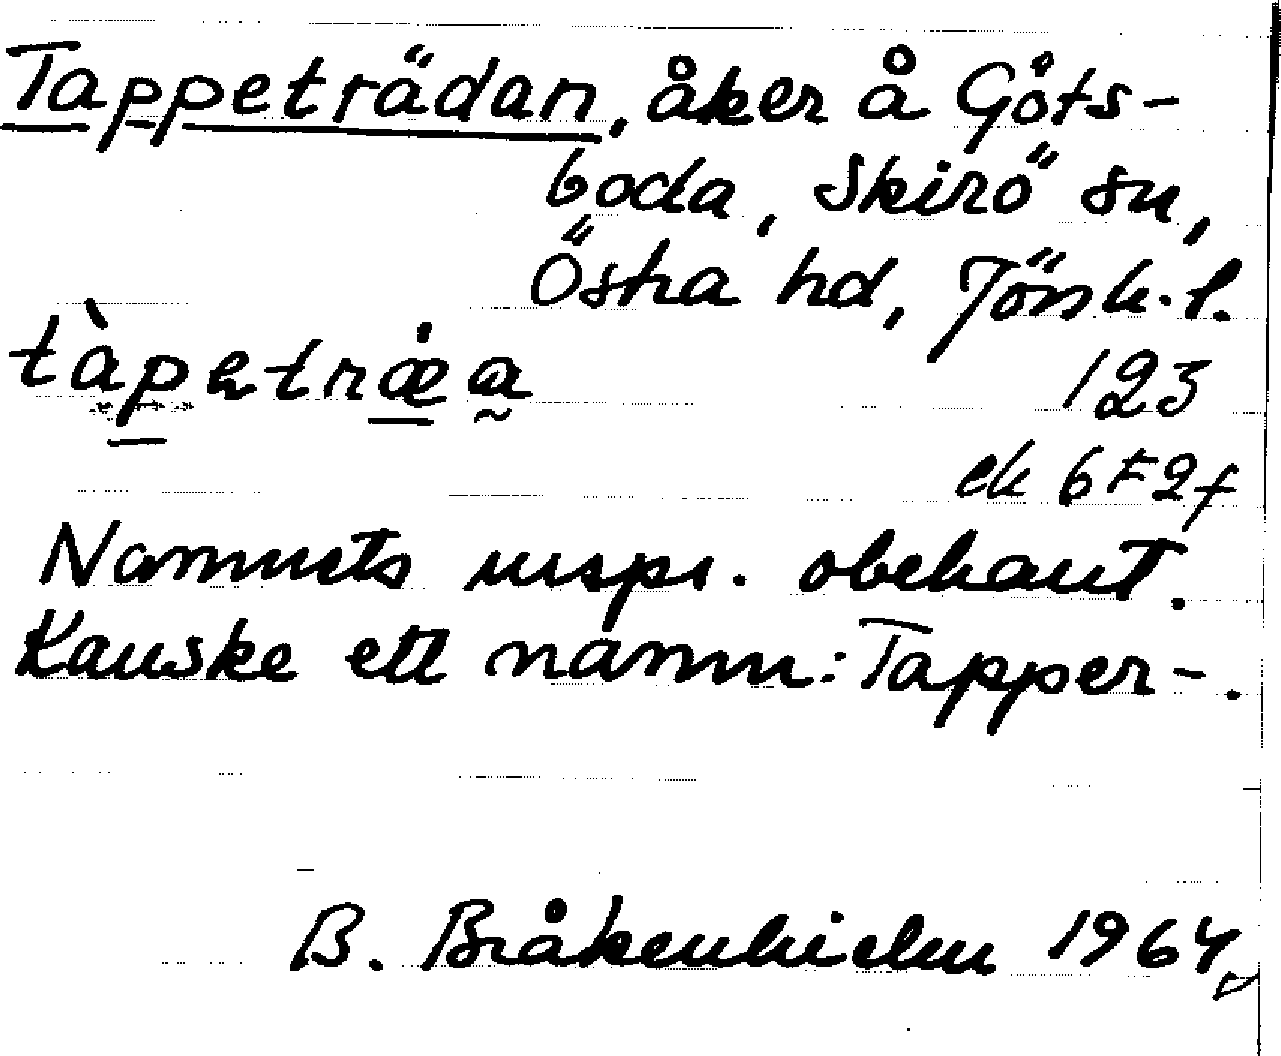 Tappeträdan, åker å Göts-
boda, Skirö sn,
Östra hd, Jönk.l.
tàpetræ̇a
123
ek 6F2f
Namnets urspr. obekant.
Kanske ett namn: Tapper-.
B. Bråkenhielm 1964